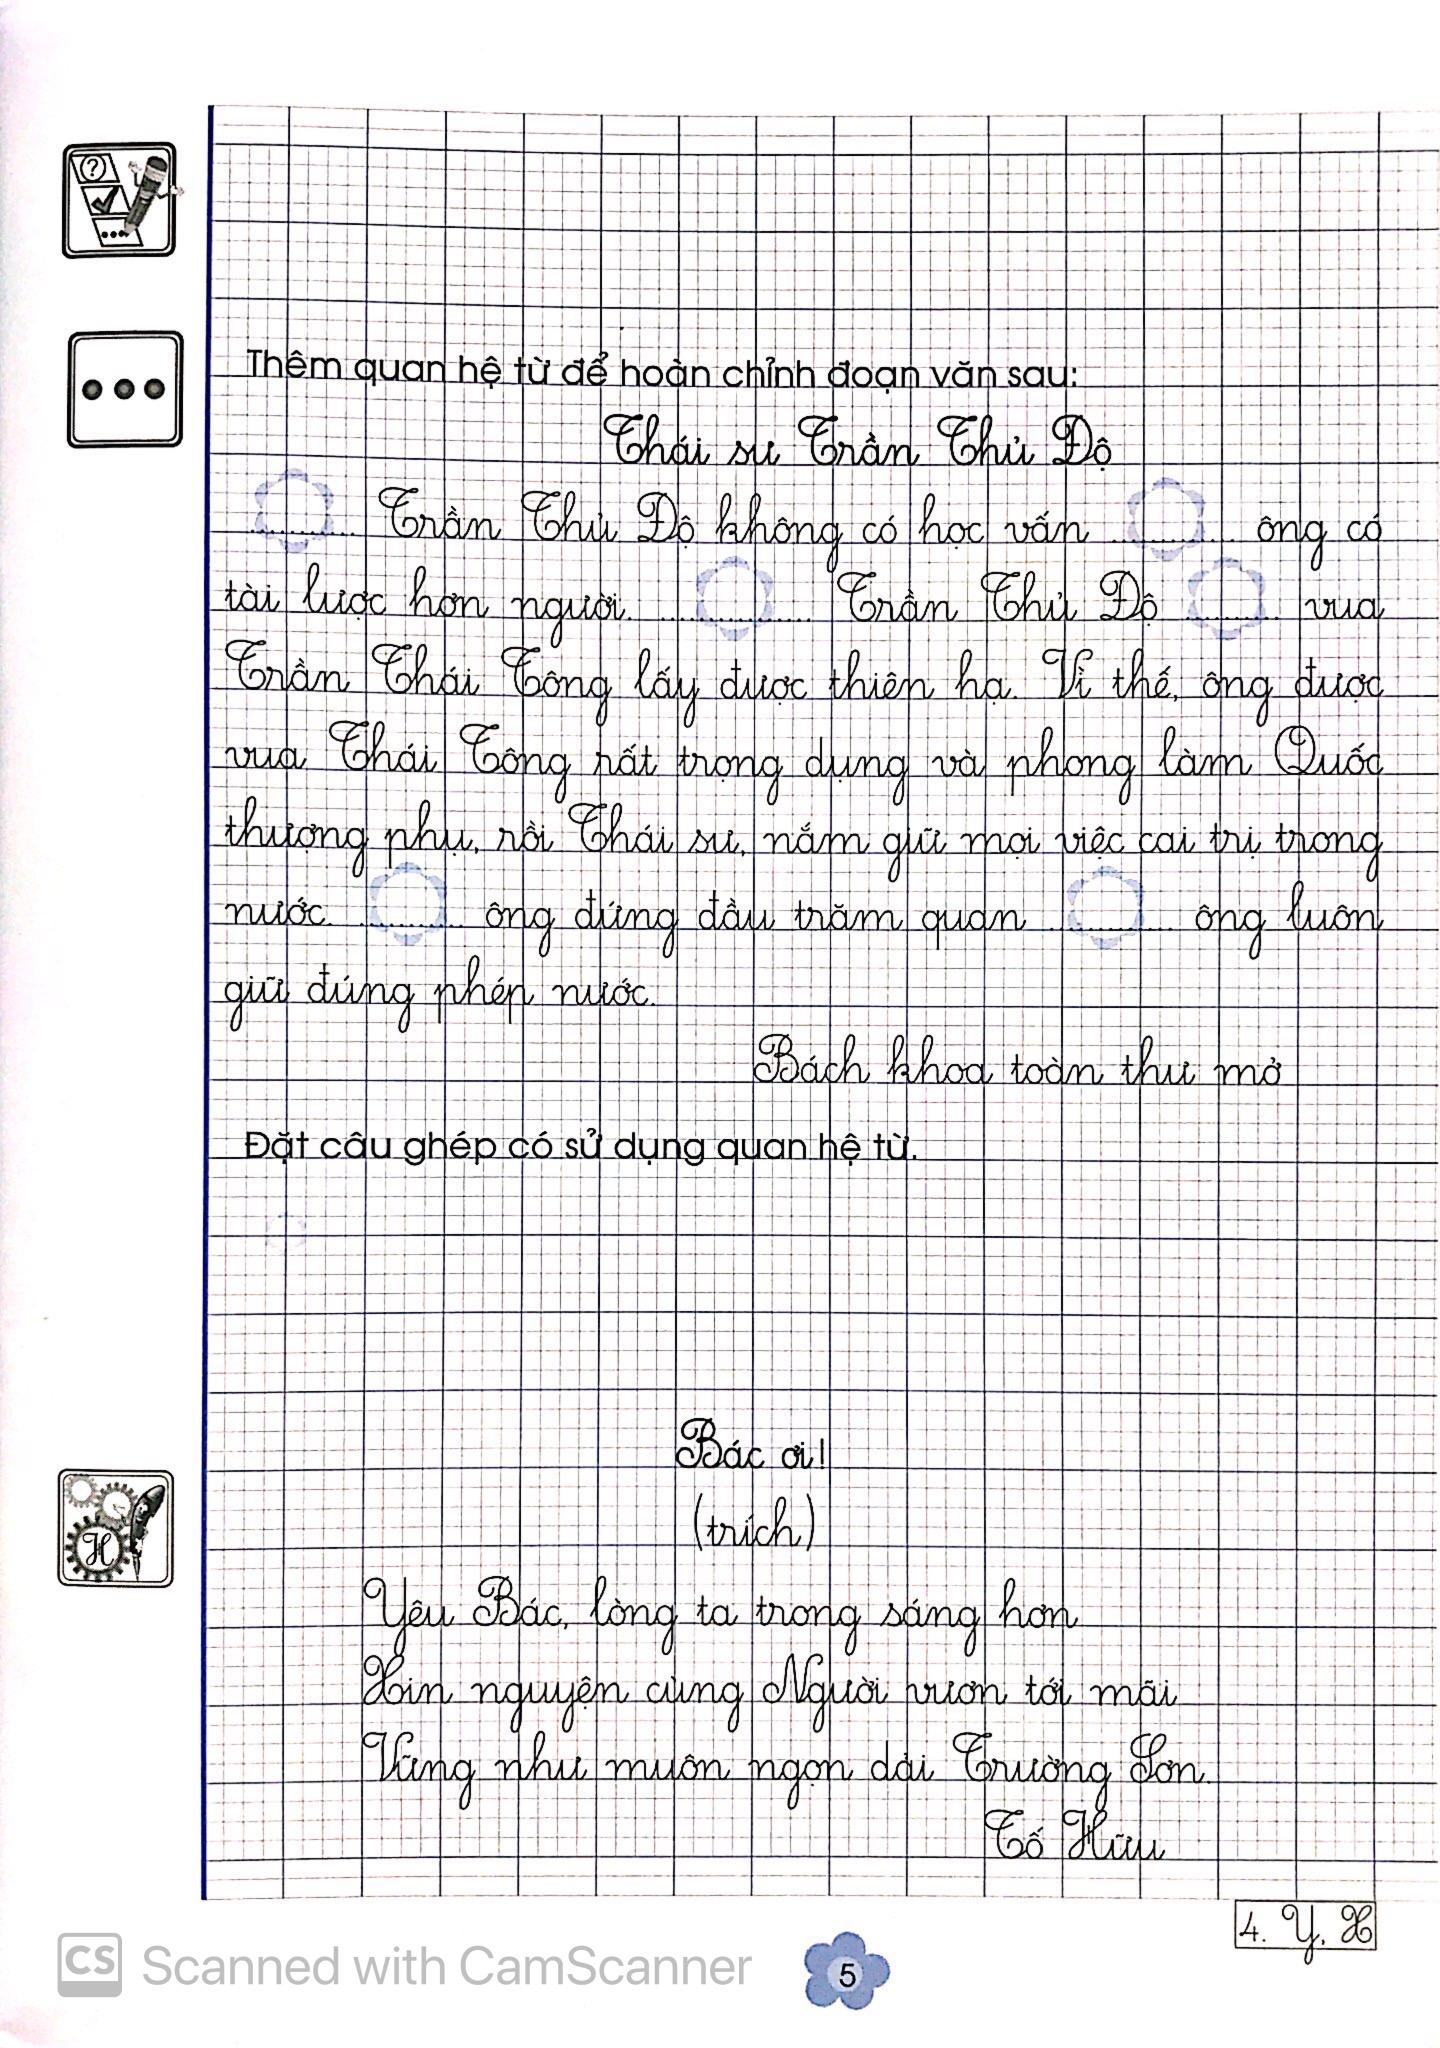 ?
Thêm quan hệ từ để hoàn chỉnh đoạn văn sau:
Thái sư Trần Thủ Độ
............ Trần Thủ Độ không có học vấn ............ ông có
tài lược hơn người. ............... Trần Thủ Độ ............ vua
Trần Thái Tông lấy được thiên hạ. Vì thế, ông được
vua Thái Tông rất trọng dụng và phong làm Quốc
thượng phụ, rồi Thái sư, nắm giữ mọi việc cai trị trong
nước. ............ ông đứng đầu trăm quan ............ ông luôn
giữ đúng phép nước.
Bách khoa toàn thư mở
Đặt câu ghép có sử dụng quan hệ từ.
H
Bác ơi!
(trích)
Yêu Bác, lòng ta trong sáng hơn
Xin nguyện cùng Người vươn tới mãi
Vững như muôn ngọn dải Trường Sơn.
Tố Hữu
4. Y, X
CS Scanned with CamScanner
5